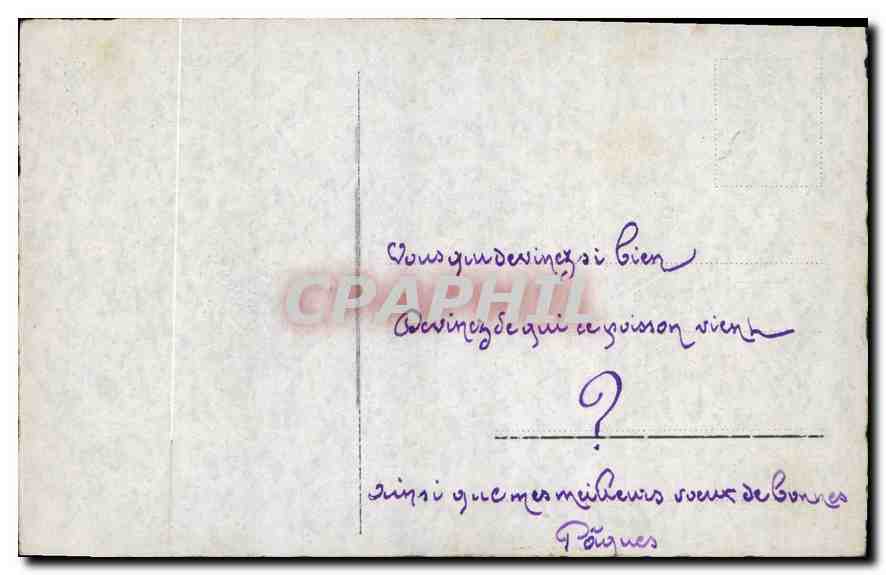 Vous qui devinez si bien
CPAPHIL
Devinez de qui ce poisson vient
?
ainsi que mes meilleurs voeux de bonnes
Pâques